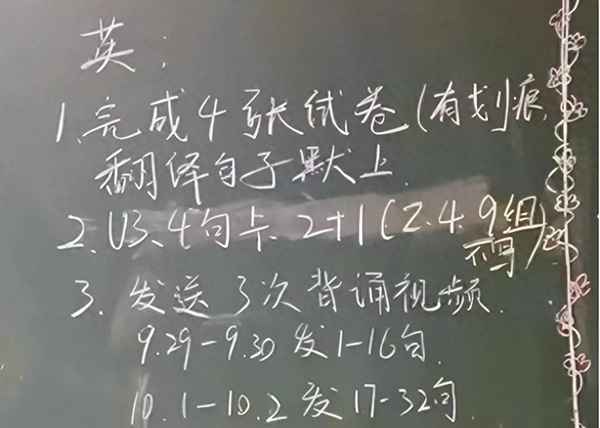 英:
1.完成4张试卷(有划痕,
翻译句子默上.
2.U3、4句卡.2+1(2.4.9组
不写)
3.发送3次背诵视频.
9.29-9.30发1-16句.
10.1-10.2发17-32句.